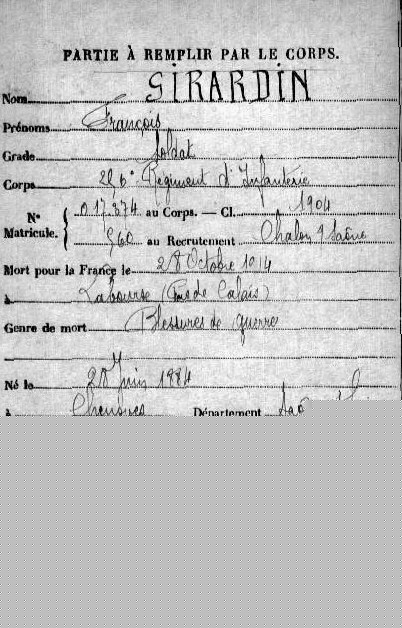 PARTIE À REMPLIR PAR LE CORPS.
Nom GIRARDIN
Prénoms François
Grade Soldat
Corps 226e Régiment d'Infanterie
N° Matricule. { 017.874 au Corps. — Cl. 1904
560 au Recrutement Chalon s/ Saône
Mort pour la France le 28 Octobre 1914
à Labourse (Pas de Calais)
Genre de mort Blessures de guerre
Né le 28 Juin 1884
à Département